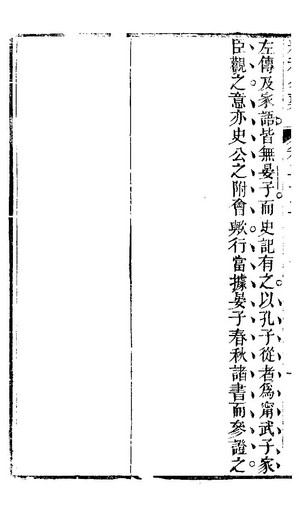 左傳及家語皆無晏子而史記有之以孔子從者爲甯武子家
臣觀之意亦史公之附會歟行當據晏子春秋諸書而參證之